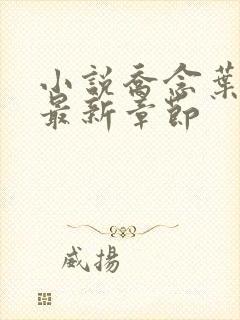 小説喬念葉
最新章節
威揚